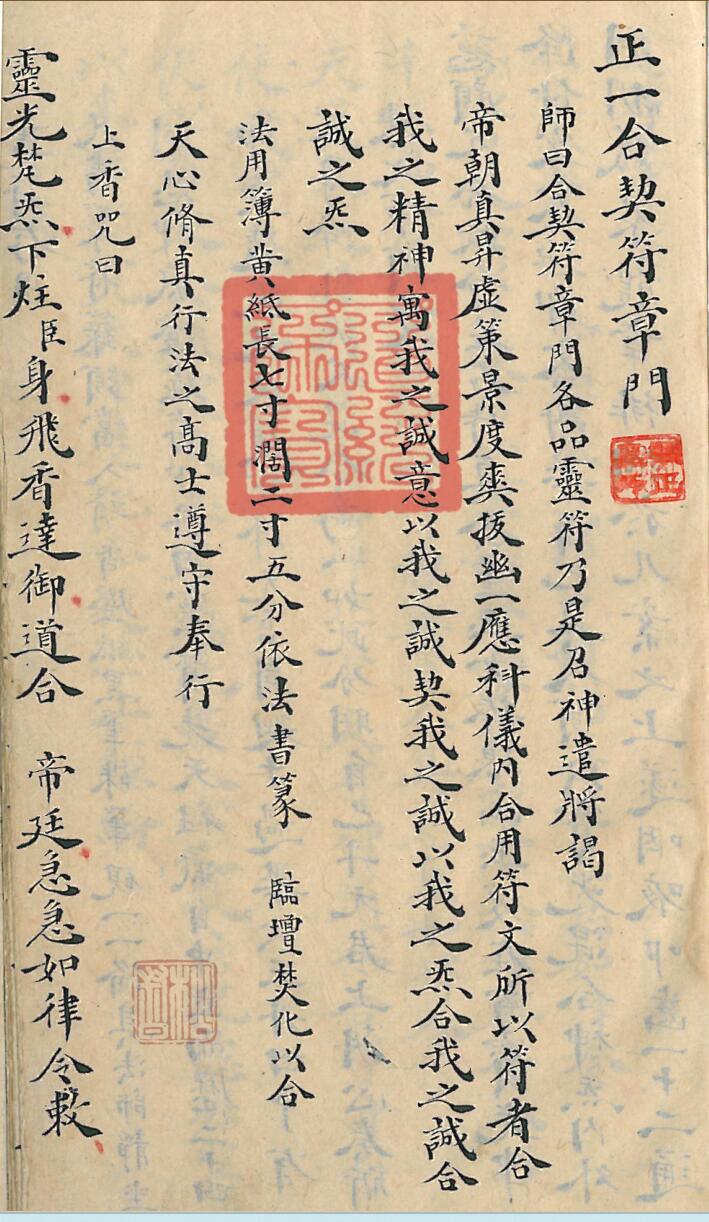 正一合契符章門
師曰合契符章門各品靈符乃是召神遣將謁
帝朝真昇虛策景度爽拔幽一應科儀內合用符文所以符者合
我之精神寓我之誠意以我之誠契我之誠以我之炁合我之誠合
誠之炁
法用簿黄紙長七寸濶二寸五分依法書篆 臨壇焚化以合
天心脩真行法之髙士遵守奉行
上香咒曰
靈光梵炁下炷臣身飛香達御道合 帝廷急急如律令敕